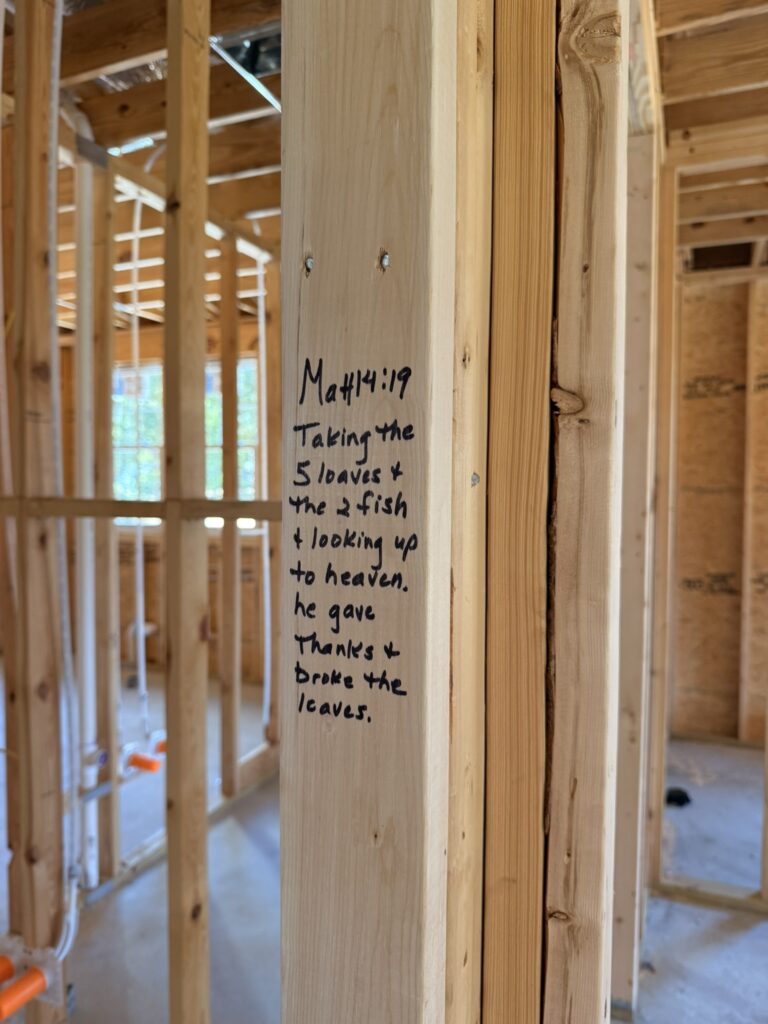 Matt14:19
Taking the
5 loaves +
the 2 fish
+ looking up
to heaven.
he gave
Thanks +
broke the
leaves.